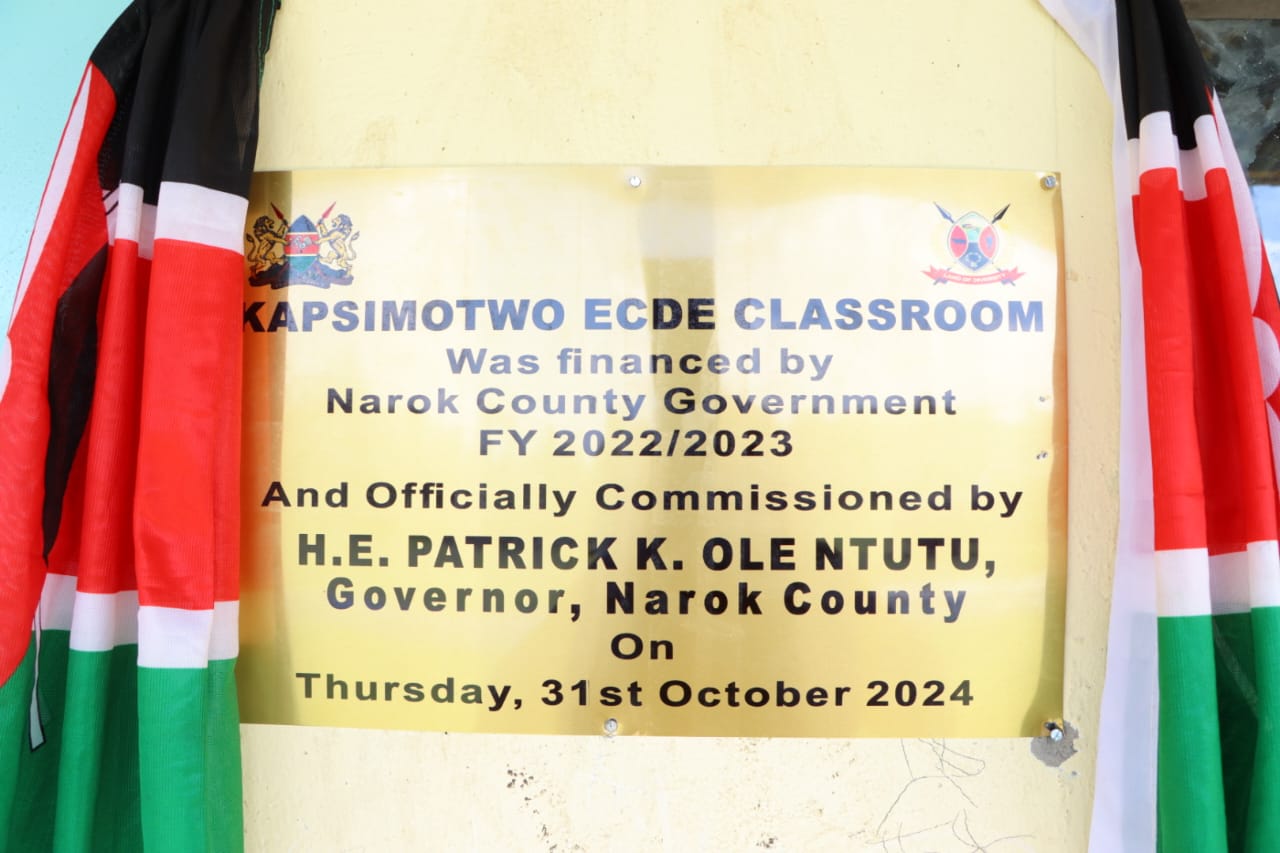 KAPSIMOTWO ECDE CLASSROOM
Was financed by
Narok County Government
FY 2022/2023
And Officially Commissioned by
H.E. PATRICK K. OLE NTUTU,
Governor, Narok County
On
Thursday, 31st October 2024